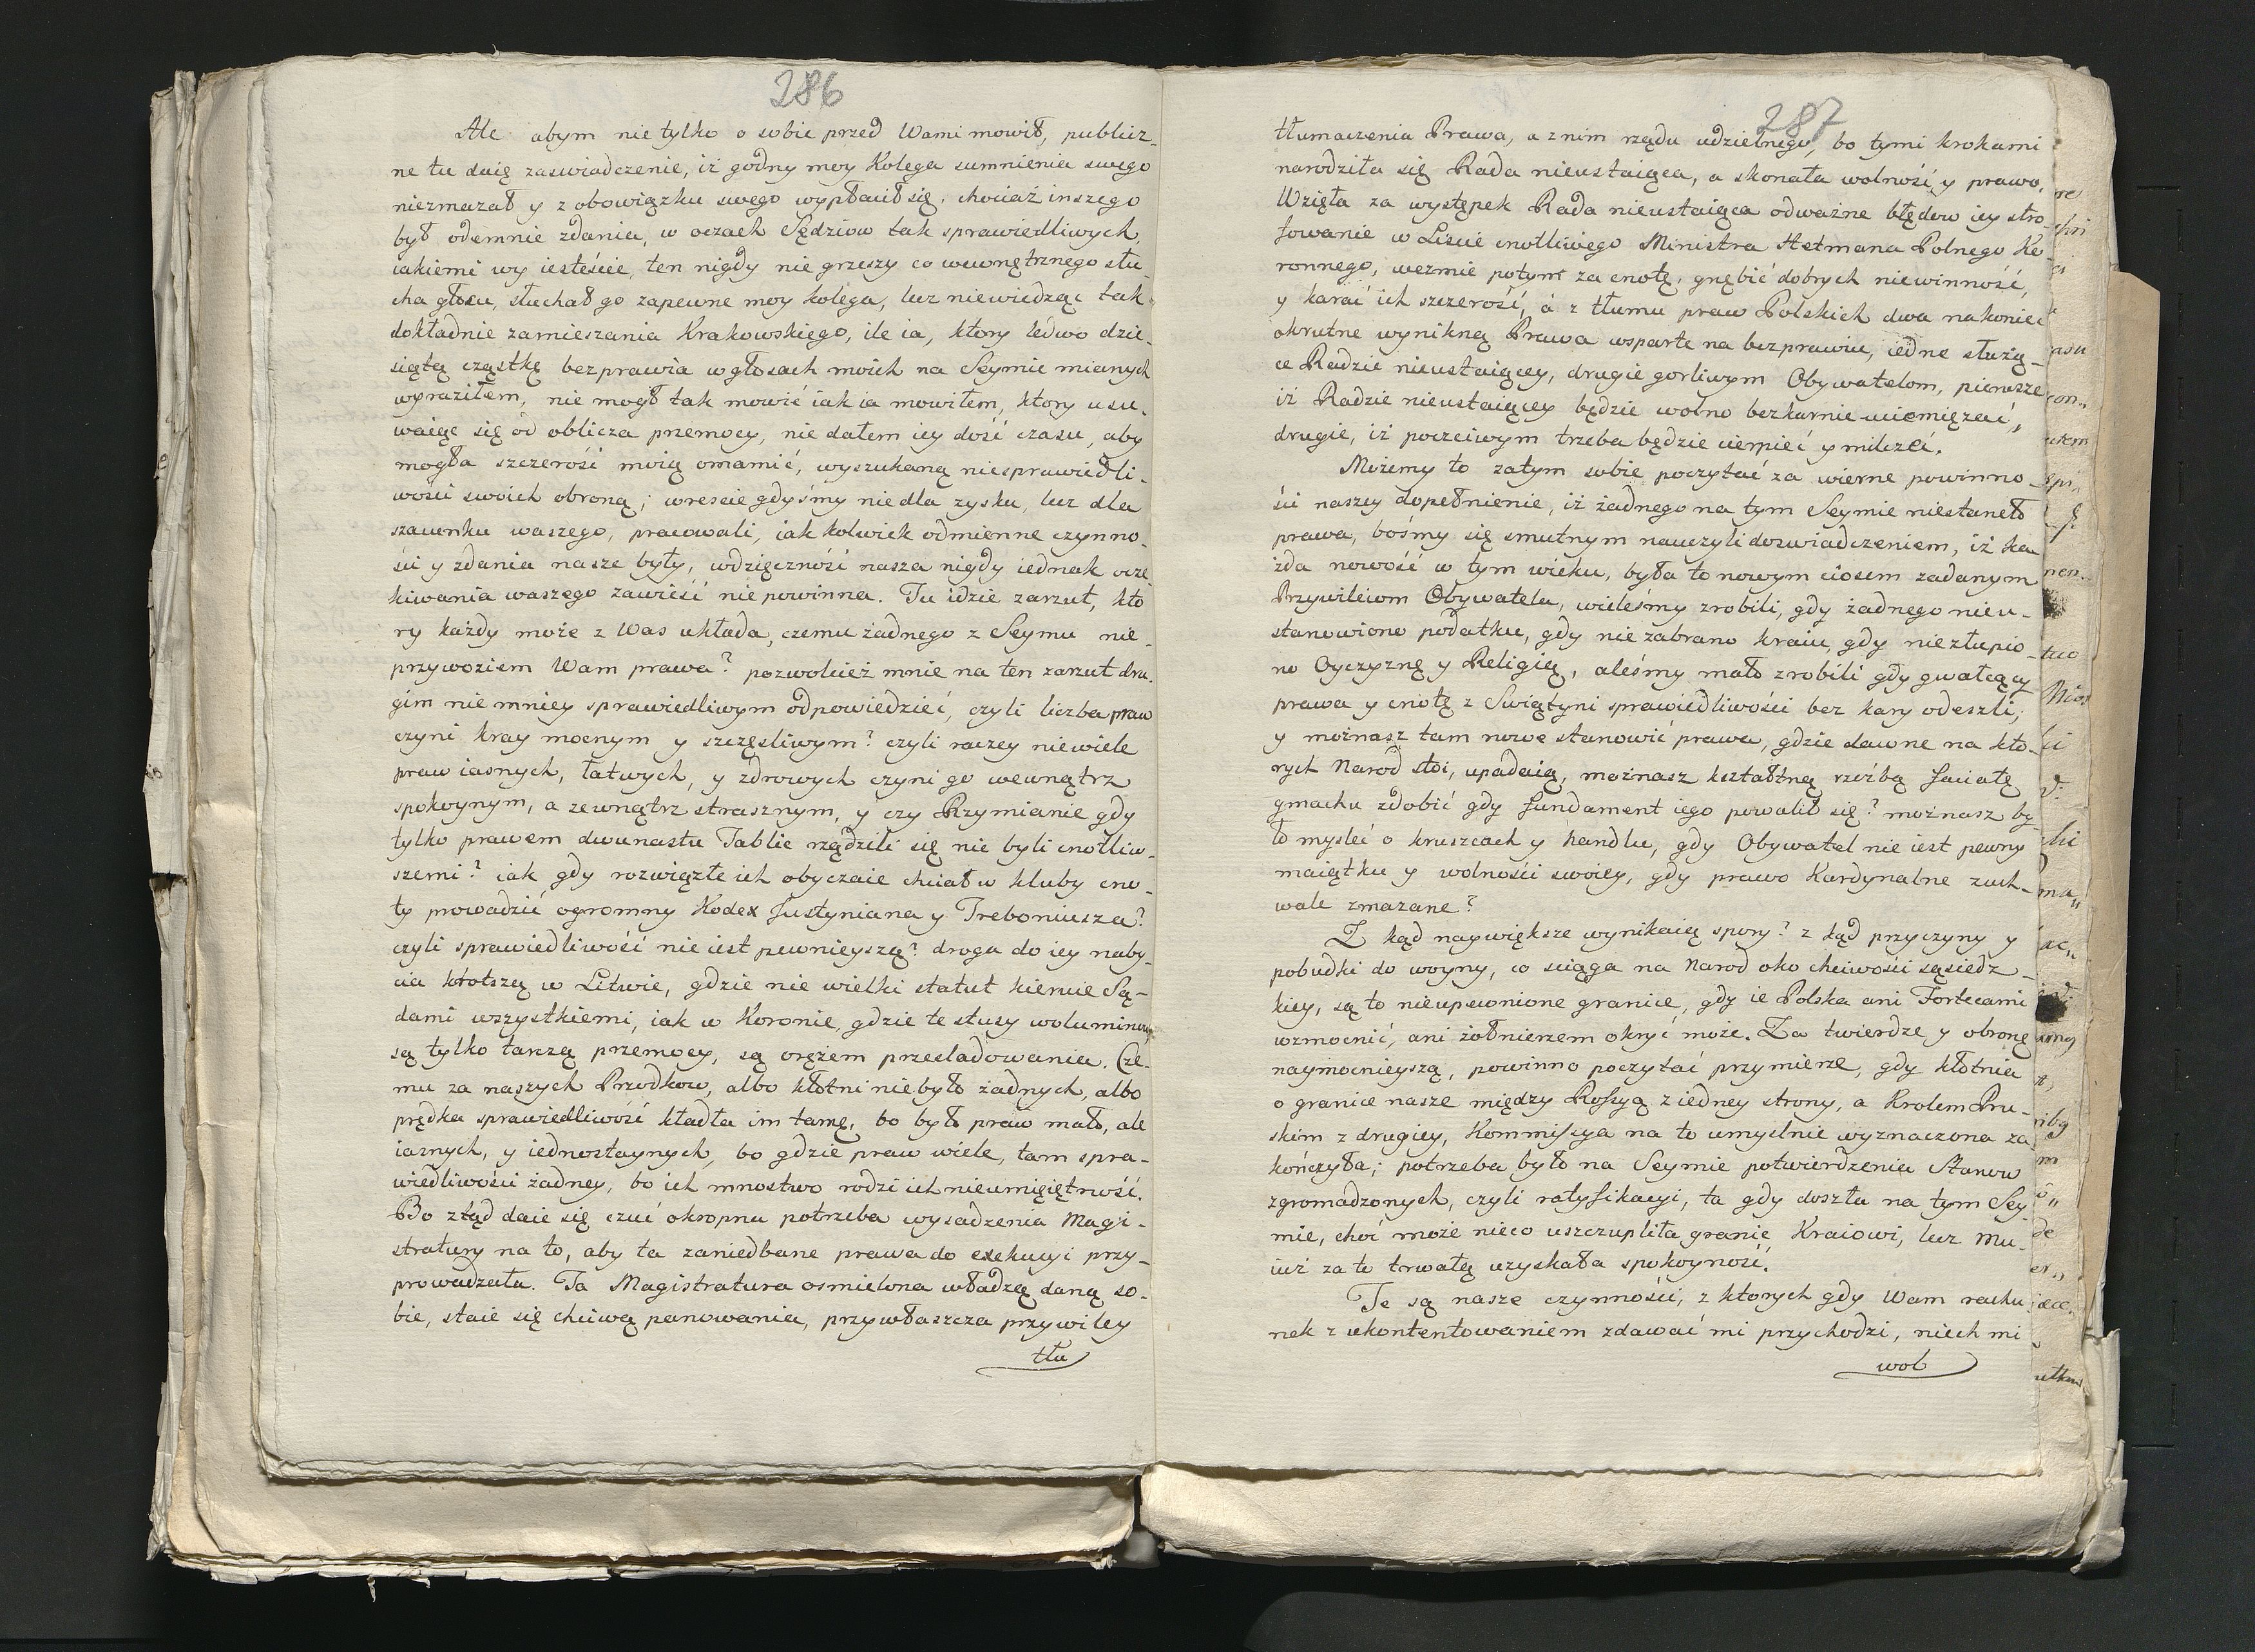 286
Ale abym nie tylko o sobie przed Wami mowił, publicz-
ne tu daię zaswiadczenie, iż godny moy Kolega sumnienia swego
niezmazał y z obowiązku swego wypłacił się, chociaż inszego
był odemnie zdania, w oczach Sędziow tak sprawiedliwych,
iakiemi wy iesteście, ten nigdy nie grzeszy co wewnętrznego słu-
cha głosu, słuchał go zapewne moy kolega, lecz niewiedząc tak
dokładnie zamieszania Krakowskiego, ile ia, ktory ledwo dzie-
siątą cząstkę bezprawia w głosach moich na Seymie mianych
wyraziłem, nie mogł tak mowić iak ia mowiłem, ktory usu-
waiąc się od oblicza przemocy, nie dałem iey dość czasu, aby
mogła szczerość moią omamić, wyszukaną niesprawiedli-
wości swoich obroną; wrescie gdyśmy nie dla zysku, lecz dla
szacunku waszego, pracowali, iakkolwiek odmienne czynno-
ści y zdania nasze były, wdzięczność nasza nigdy iednak ocze-
kiwania waszego zawieść nie powinna. Tu idzie zarzut, kto
ry każdy może z Was układa, czemu żadnego z Seymu nie-
przywoziem Wam prawa? pozwolcież mnie na ten zarzut dru-
gim nie mniey sprawiedliwym odpowiedzieć, czyli liczba praw
czyni kray mocnym y szczęsliwym? czyli raczey niewiele
praw iasnych, łatwych, y zdrowych czyni go wewnątrz
spokoynym, a zewnątrz strasznym, y czy Rzymianie gdy
tylko prawem dwunastu Tablic rządzili się nie byli cnotliw-
szemi? iak gdy rozwiązłe ich obyczaie chciał w kluby cno-
ty prowadzić ogromny Kodex Justyniana y Treboniusza?
czyli sprawiedliwość nie iest pewnieyszą? droga do iey naby-
cia krotszą w Litwie, gdzie nie wielki statut kieruie Są-
dami wszystkiemi, iak w Koronie, gdzie te stusy woluminow
są tylko tarczą przemocy, są orężem przesladowania. Cze-
mu za naszych Przodkow, albo kłotni nie było żadnych, albo
prędka sprawiedliwość kładła im tamę, bo było praw mało, ale
iasnych, y iednostaynych, bo gdzie praw wiele, tam spra-
wiedliwości żadney, bo ich mnostwo rodzi ich nieumieiętność.
Bo ztąd daie się czuć okropna potrzeba wysadzenia Magi-
stratury na to, aby ta zaniedbane prawa do exekucyi przy-
prowadzała. Ta Magistratura osmielona władzą daną so-
bie, staie się chciwą panowania, przywłaszcza przywiley
tłu
287
tłumaczenia Prawa, a z nim rządu udzielnego, bo tymi krokami
narodziła się Rada nieustaiąca, a skonała wolność y prawo.
Wzięła za występek Rada nieustaiąca odważne błędow iey stro
fowanie w Liscie cnotliwego Ministra Hetmana Polnego Ko-
ronnego, wezmie potym za cnotę, gnębić dobrych niewinność,
y karać ich szczerość, á z tłumu praw Polskich dwa nakoniec
okrutne wynikną Prawa wsparte na bezprawiu, iedne służą-
ce Radzie nieustaiącey, drugie gorliwym Obywatelom, pierwsze
iż Radzie nieustaiącey będzie wolno bezkarnie uciemiężać,
drugie, iż poczciwym trzeba będzie cierpieć y milczeć.
Możemy to zatym sobie poczytać za wierne powinno-
ści naszey dopełnienie, iż żadnego na tym Seymie niestaneło
prawa, bośmy się smutnym nauczyli doswiadczeniem, iż ka
żda nowość w tym wieku, była to nowym ciosem zadanym
Przywileiom Obywatela, wieleśmy zrobili, gdy żadnego nieu-
stanowiono podatku, gdy nie zabrano kraiu, gdy niezłupio-
no Oyczyznę y Religią, aleśmy mało zrobili gdy gwałcący
prawa y cnotę z Swiątyni sprawiedliwości bez kary odeszli,
y możnasz tam nowe stanowić prawa, gdzie dawne na kto-
rych Narod stoi, upadaią, możnasz kształtną rzeźbą faciatę
gmachu zdobić gdy fundament iego powalił się? możnasz by
ło mysleć o kruszcach y handlu, gdy Obywatel nie iest pewny
maiątku y wolności swoiey, gdy prawo Kardynalne zuch-
wale zmazane?
Z kąd naywiększe wynikaią spory? z kąd przyczyny y
pobudki do woyny, co sciąga na Narod oko chciwości sąsiedz-
kiey, są to nieupewnione granice, gdy ie Polska ani Fortecami
wzmocnić, ani żołnierzem okryć może. Za twierdzę y obronę
naymocnieyszą, powinno poczytać przymierze, gdy kłotnia
o granice nasze między Rossyą z iedney strony, a Krolem Pru-
skim z drugiey, Kommissya na to umyslnie wyznaczona za
kończyła; potrzeba było na Seymie potwierdzenia Stanow
zgromadzonych, czyli ratyfikacyi, ta gdy doszła na tym Sey
mie, choć może nieco uszczupliła granic Kraiowi, lecz mu
iuż za to trwałą uzyskała spokoyność.
Te są nasze czynności, z ktorych gdy Wam rachu
nek z ukontentowaniem zdawać mi przychodzi, niech mi
wol